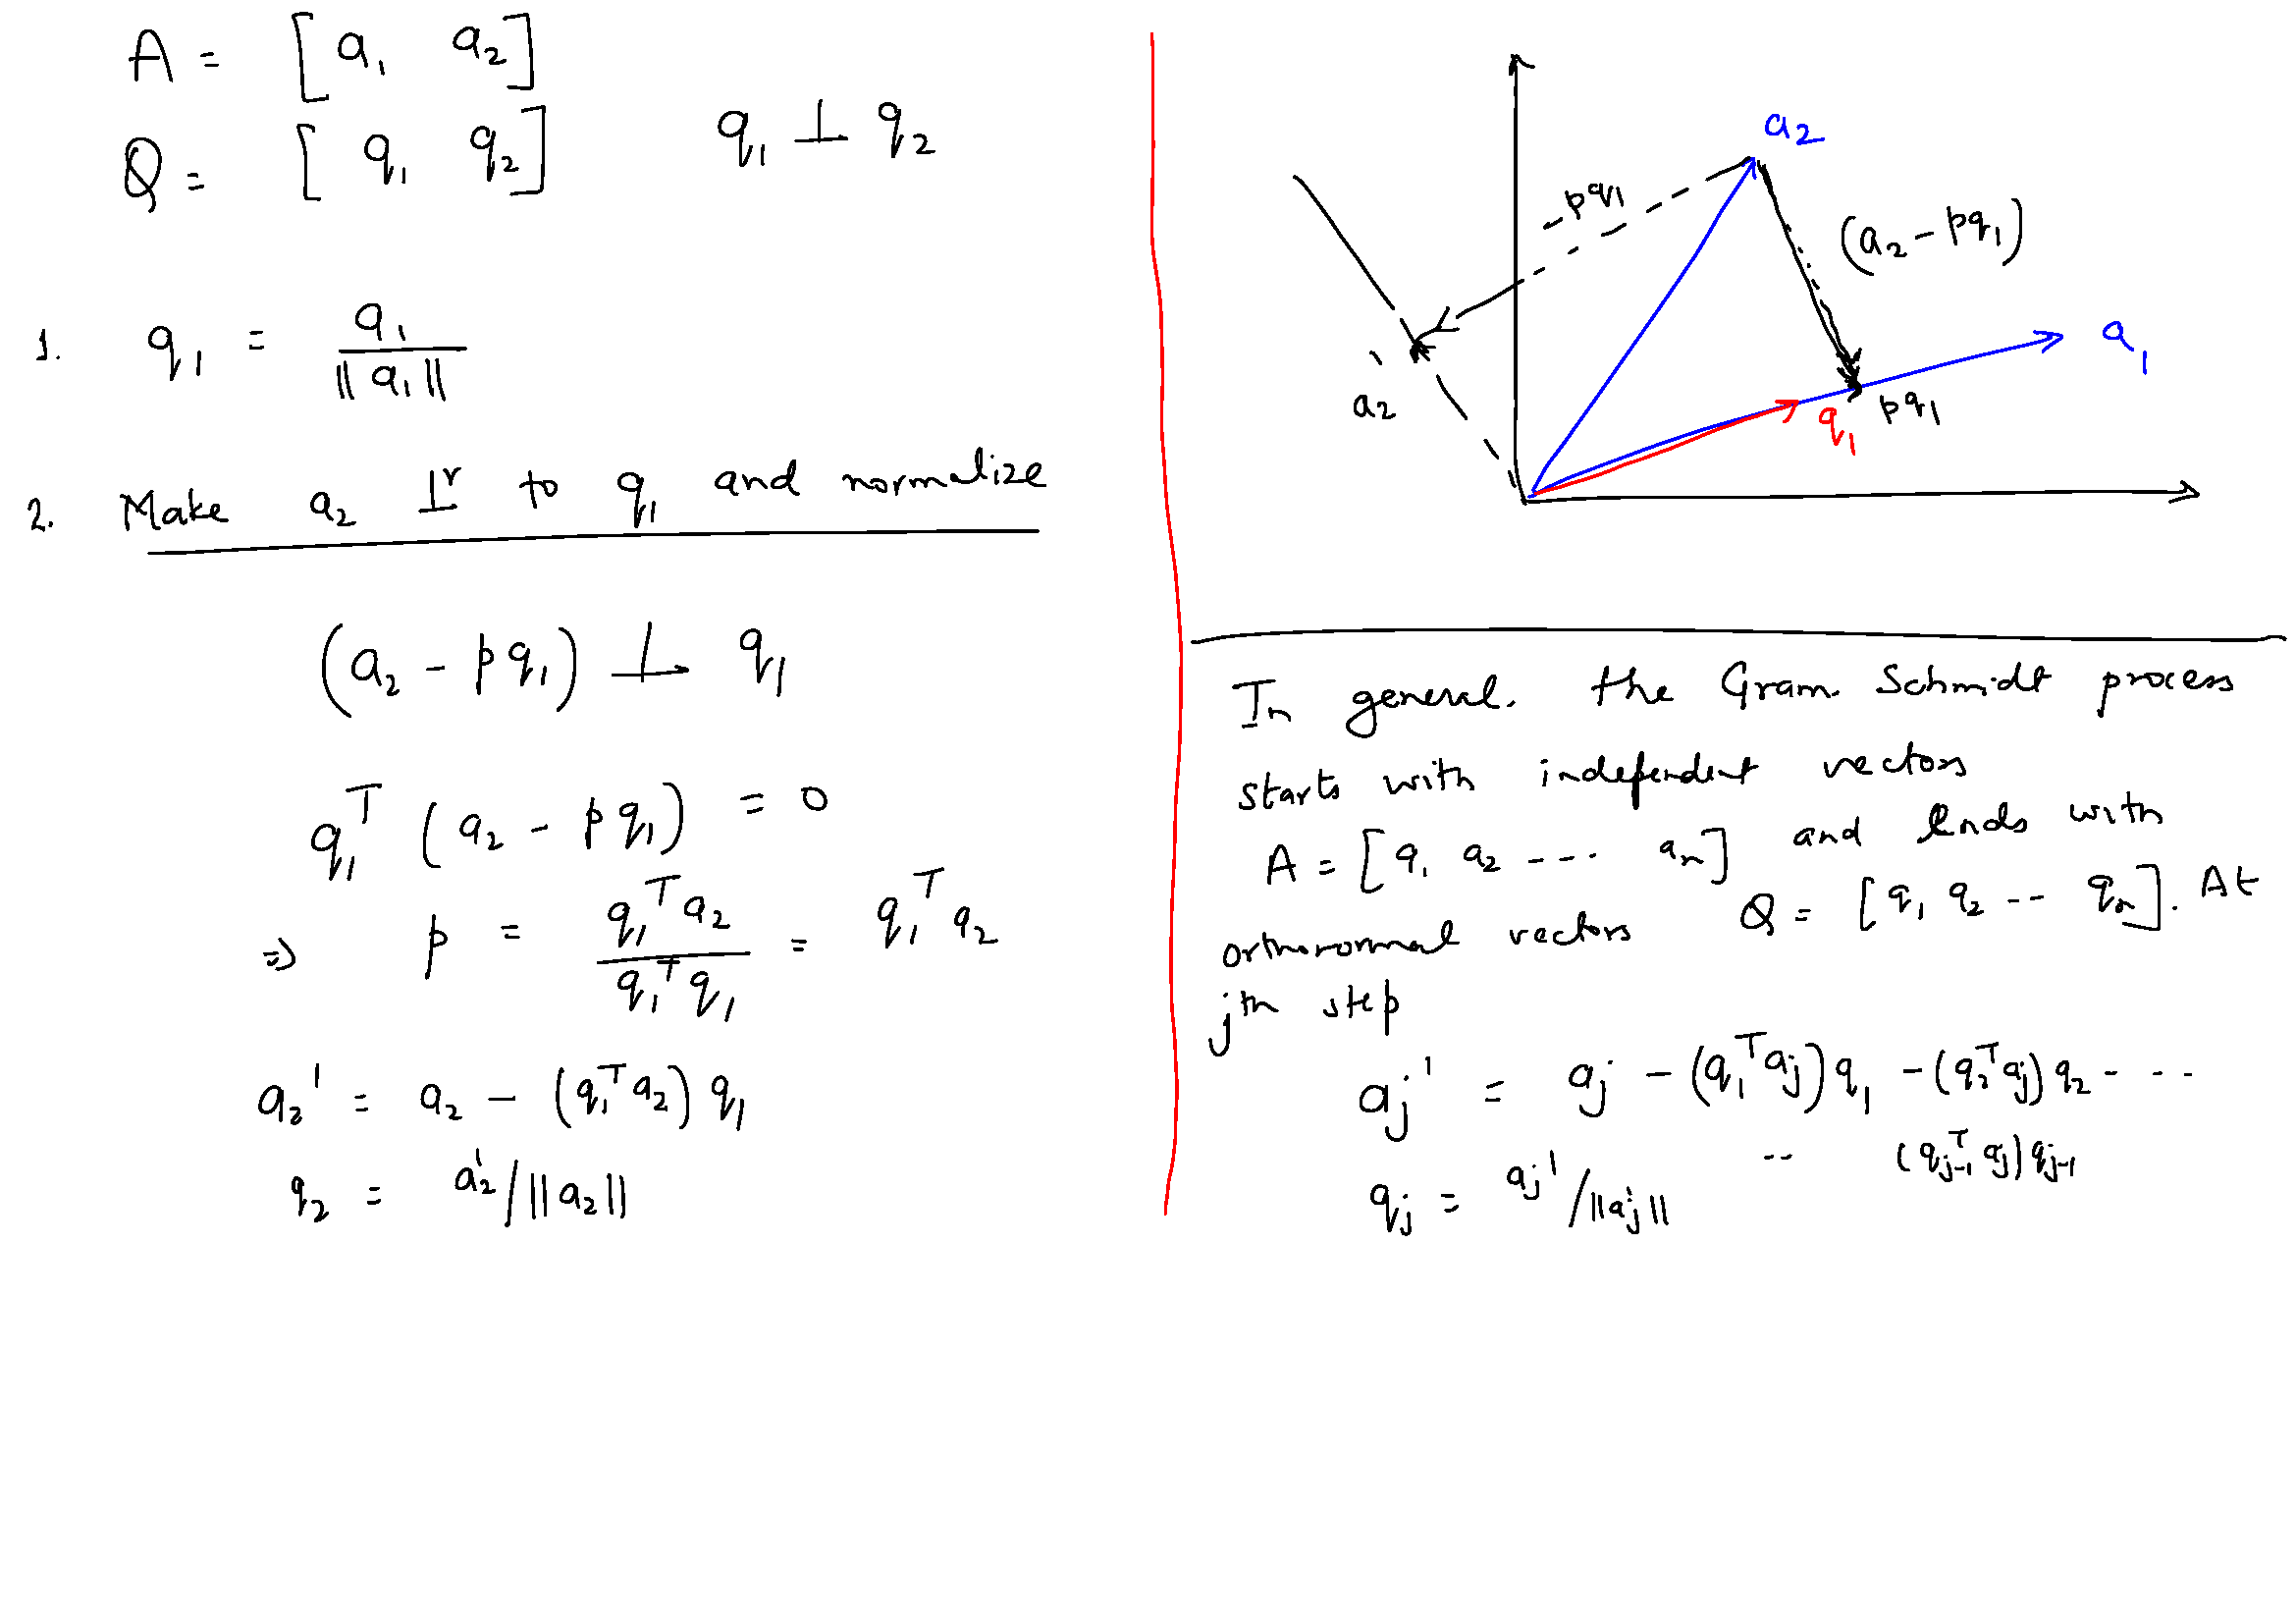 A = [a₁ a₂]
Q = [q₁ q₂] q₁ ⊥ q₂
1. q₁ = a₁ / ||a₁||
2. Make a₂ ⊥ʳ to q₁ and normalize
(a₂ - pq₁) ⊥ q₁
q₁ᵀ (a₂ - pq₁) = 0
⇒ p = q₁ᵀa₂ / q₁ᵀq₁ = q₁ᵀa₂
a₂' = a₂ - (q₁ᵀa₂) q₁
q₂ = a₂' / ||a₂||
a₂
-pq₁
(a₂ - pq₁)
a₁
a₂'
q₁
pq₁
In general. the Gram. Schmidt process
starts with independent vectors
A = [a₁ a₂ ---- aₙ] and ends with
orthonormal vectors Q = [q₁ q₂ -- qₙ]. At
jth step
aⱼ' = aⱼ - (q₁ᵀaⱼ) q₁ - (q₂ᵀaⱼ) q₂ - ---
-- (qⱼ₋₁ᵀ aⱼ) qⱼ₋₁
qⱼ = aⱼ' / ||aⱼ'||